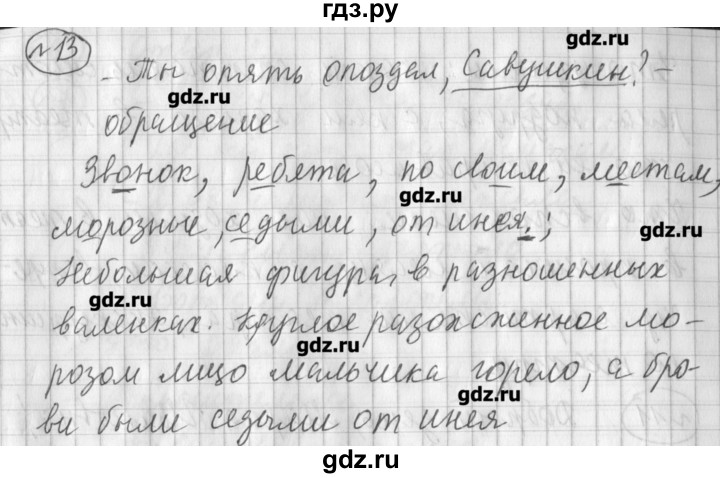 гдз.ру
№13
gdz.ru
- Ты опять опоздал, Савушкин? -
gdz.ru
обращение
Звонок, ребята, по своим, местам,
gdz.ru
морозные, седыми, от инея.;
gdz.ru
Небольшая фигура, в разношенных
gdz.ru
валенках. Круглое разожженное мо-
gdz.ru
розом лицо мальчика горело, а бро-
gdz.ru
ви были седыми от инея
gdz.ru